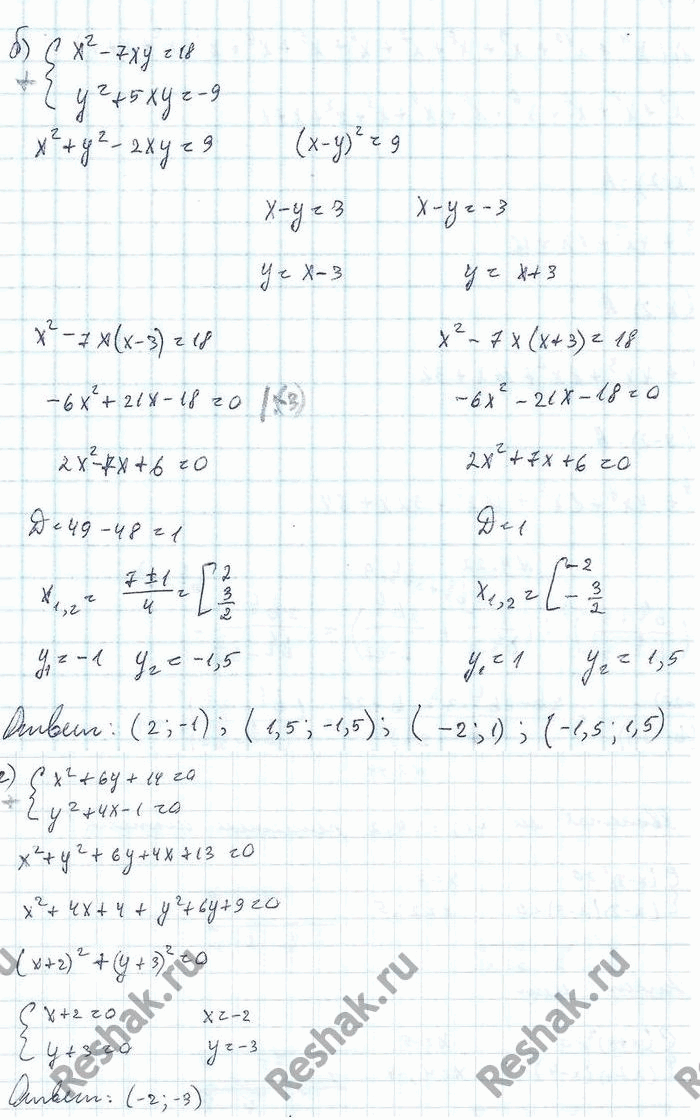 б) { x² - 7xy = 18
+ { y² + 5xy = -9
x² + y² - 2xy = 9 (x-y)² = 9
x-y = 3 x-y = -3
y = x-3 y = x+3
x² - 7x(x-3) = 18 x² - 7x(x+3) = 18
-6x² + 21x - 18 = 0 |(-3) -6x² - 21x - 18 = 0
2x² - 7x + 6 = 0 2x² + 7x + 6 = 0
D = 49 - 48 = 1 D = 1
x₁,₂ = (7±1)/4 = [ 2 ; 3/2 x₁,₂ = [ -2 ; -3/2
y₁ = -1 y₂ = -1,5 y₁ = 1 y₂ = 1,5
Ответ: (2;-1); (1,5;-1,5); (-2;1); (-1,5;1,5)
г) { x² + 6y + 14 = 0
+ { y² + 4x - 1 = 0
x² + y² + 6y + 4x + 13 = 0
x² + 4x + 4 + y² + 6y + 9 = 0
(x+2)² + (y+3)² = 0
{ x+2 = 0 x = -2
{ y+3 = 0 y = -3
Ответ: (-2;-3)
Reshak.ru
Reshak.ru
Reshak.ru